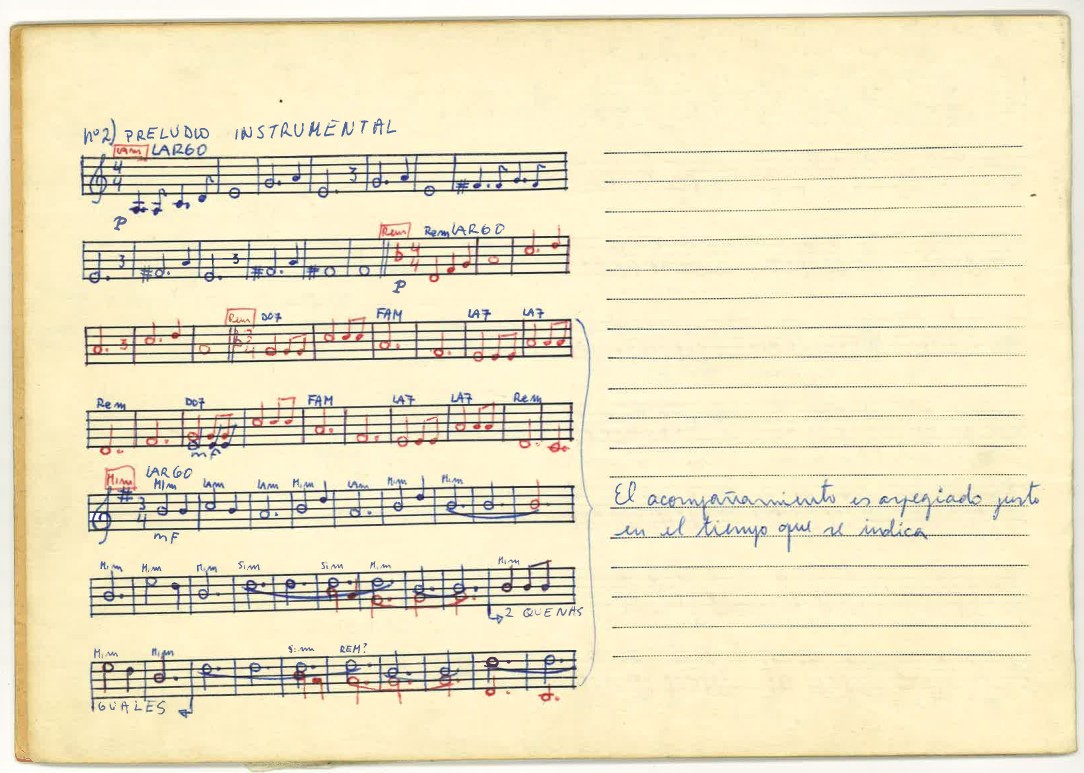 nº2) PRELUDIO INSTRUMENTAL
LAm LARGO
4
4
3
P
3 3 Rem Rem LARGO
4
4
P
3 Rem DO7 FAM LA7 LA7
3
4
Rem DO7 FAM LA7 LA7 Rem
mF
Mim LARGO
Mim LAm LAm Mim LAm Mim Mim
3
4
mF
El acompañamiento es arpegiado justo
en el tiempo que se indica
Mim Mim Mim Sim Sim Mim Mim
2 QUENAS
Mim Mim Sim REM?
IGUALES